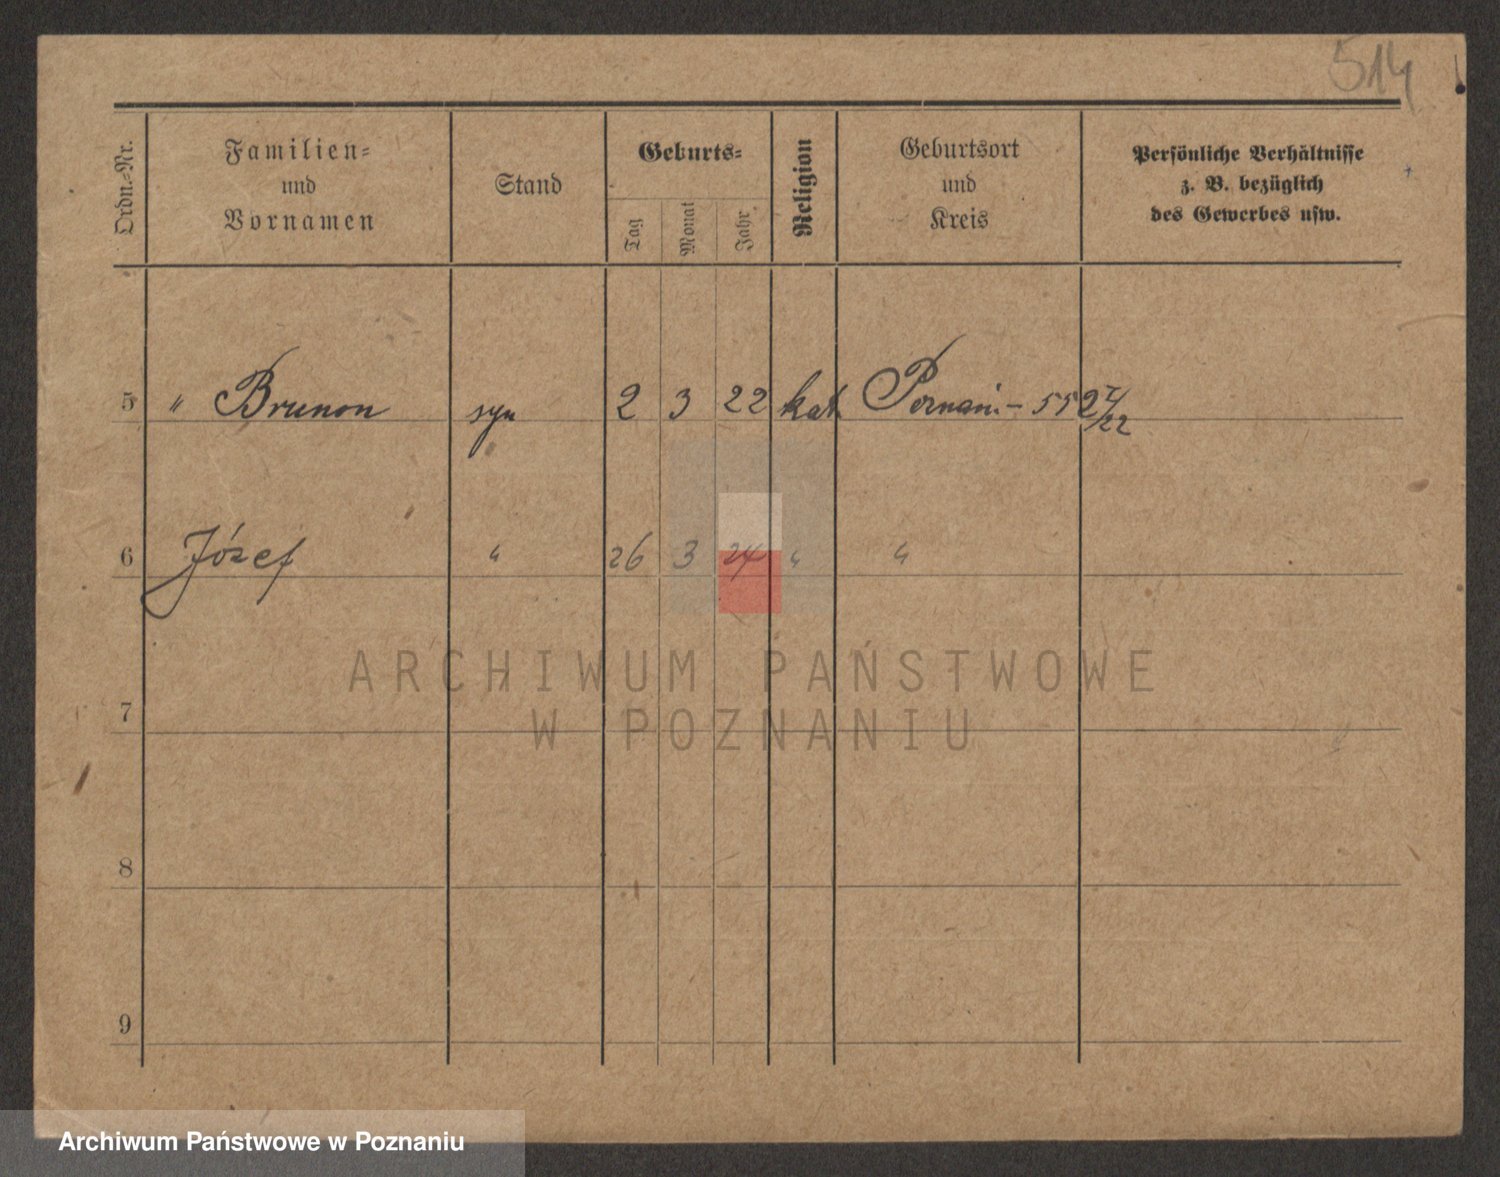 514
Ordn.-Nr.
Familien-
und
Vornamen
Stand
Geburts-
Tag
Monat
Jahr
Religion
Geburtsort
und
Kreis
Persönliche Verhältnisse
z. B. bezüglich
des Gewerbes usw.
5 " Brunon syn 2 3 22 kat. Poznań -
6 Józef " 26 3 24 " "
ARCHIWUM PAŃSTWOWE
W POZNANIU
7
8
9
Archiwum Państwowe w Poznaniu